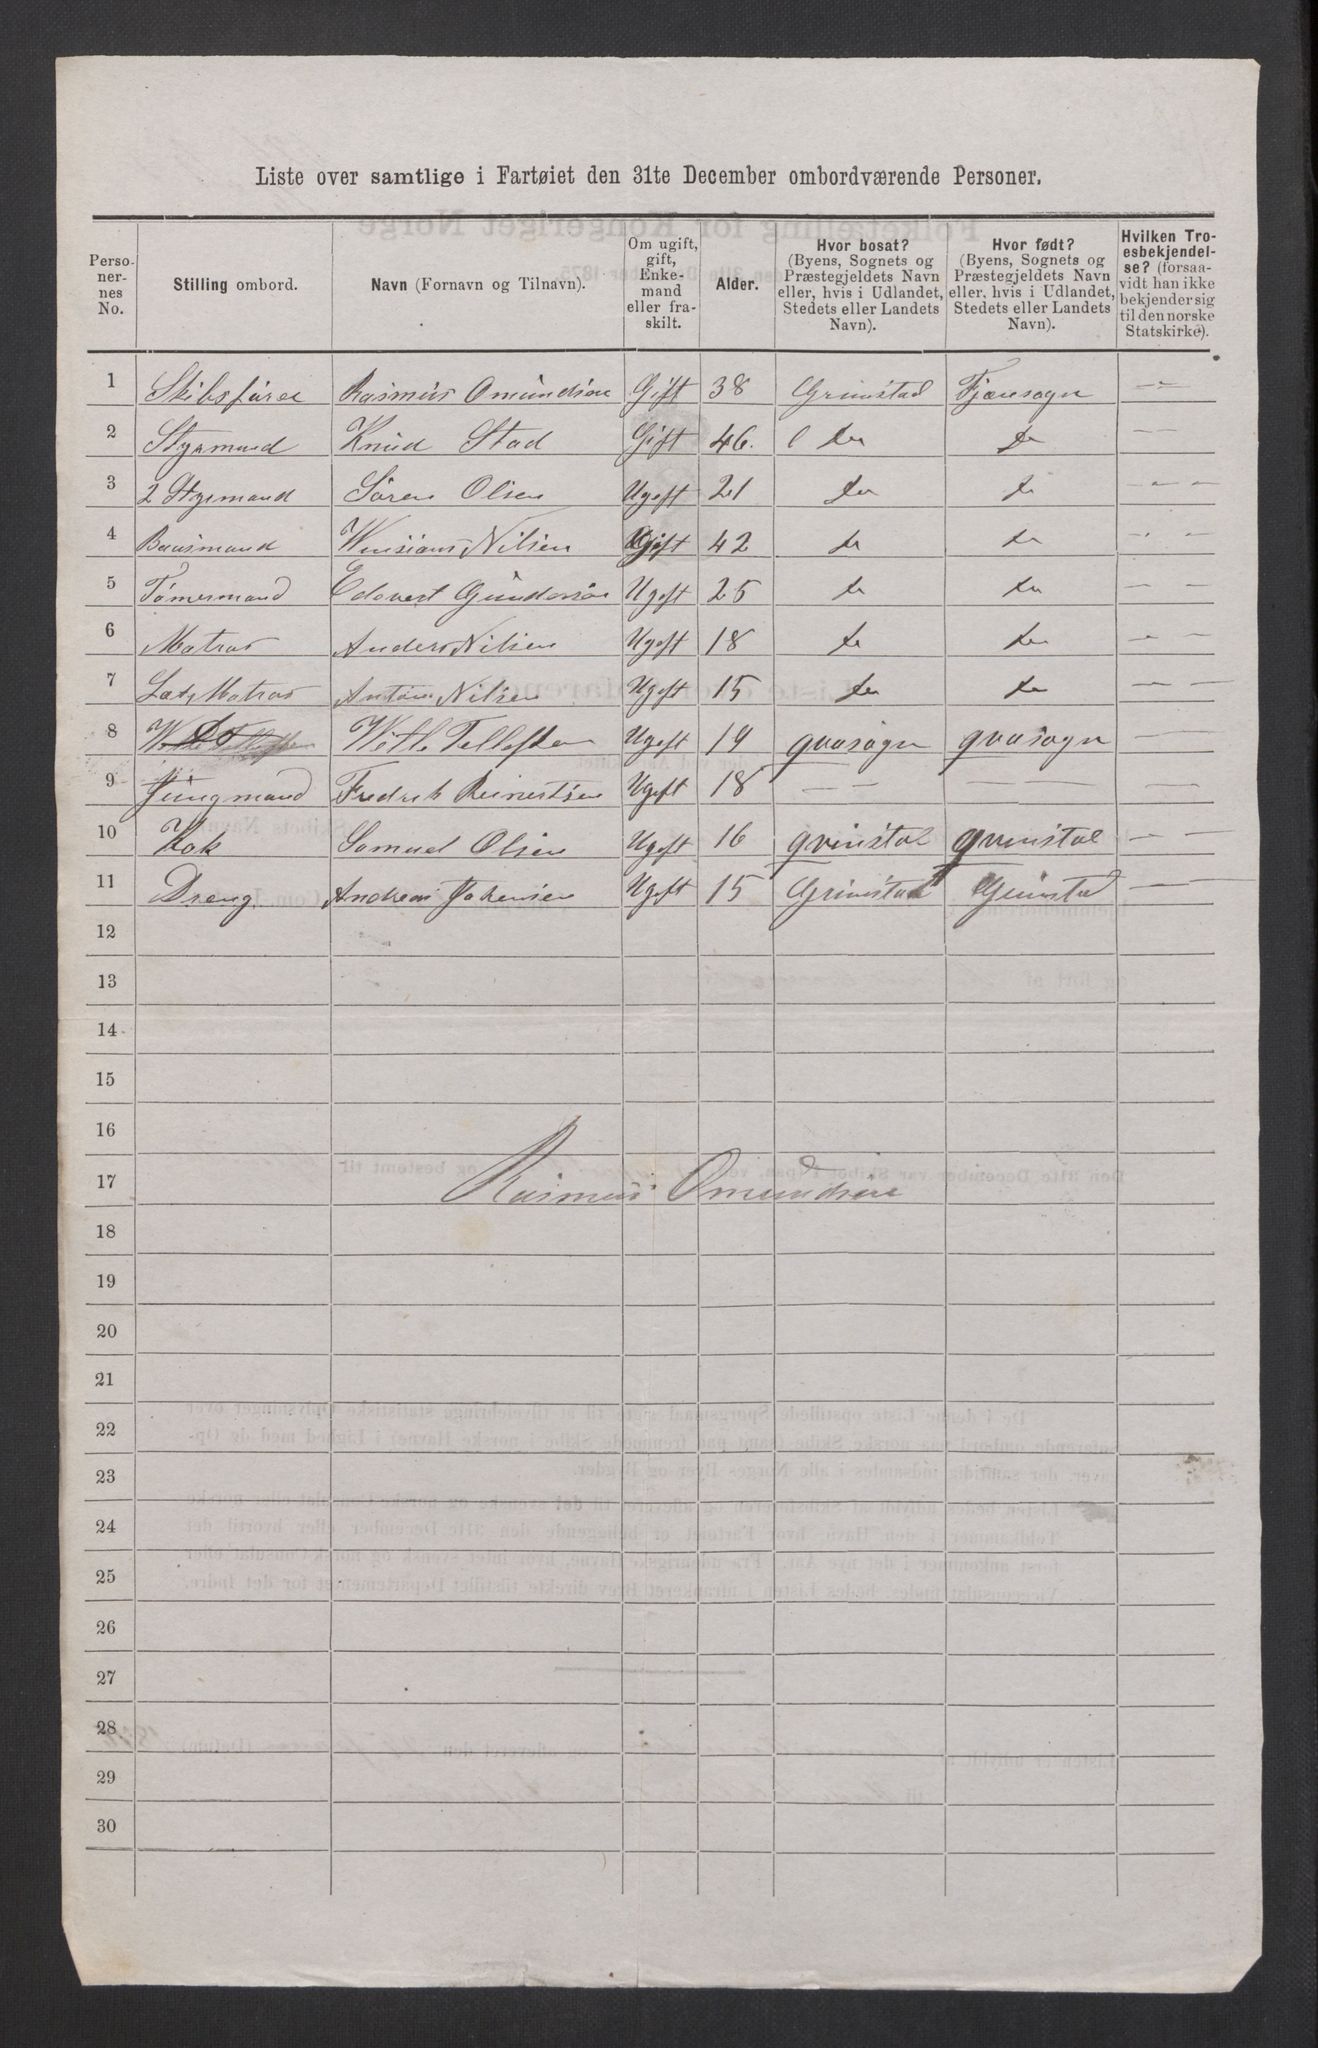 Liste over samtlige i Fartøiet den 31te December ombordværende Personer.
Personernes No. | Stilling ombord. | Navn (Fornavn og Tilnavn). | Om ugift, gift, Enkemand eller fraskilt. | Alder. | Hvor bosat? (Byens, Sognets og Præstegjeldets Navn eller, hvis i Udlandet, Stedets eller Landets Navn). | Hvor født? (Byens, Sognets og Præstegjeldets Navn eller, hvis i Udlandet, Stedets eller Landets Navn). | Hvilken Troesbekjendelse? (forsaavidt han ikke bekjender sig til den norske Statskirke).
1 Skibsfører Rasmus Omundsen Gift 38 Grimstad Fjæresogn — —
2 Styrmand Knud Stad Gift 46. do do — —
3 2 Styrmand Søren Olsen Ugift 21 do do — — —
4 Baasmand Nilsen Gift 42 do do — —
5 Tømermand Edevert Gundersen Ugift 25 do do — —
6 Matros Anders Nilsen Ugift 18 do do — —
7 Matros Anton Nilsen Ugift 15 do do — —
8 Tellefsen Ugift 19 — —
9 Jungmand Fredrik Reinertsen Ugift 18 — — — — — —
10 Kok Samuel Olsen Ugift 16 grimstad grimstad — —
11 Dreng Andreas Ugift 15 Grimstad Grimstad — —
12
13
14
15
16
17 Rasmus Omundsen
18
19
20
21
22
23
24
25
26
27
28
29
30